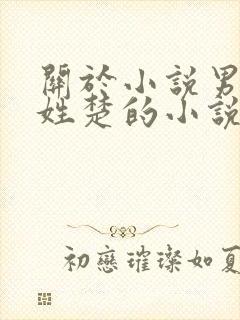 關於小說男
姓楚的小說
初戀璀璨如夏